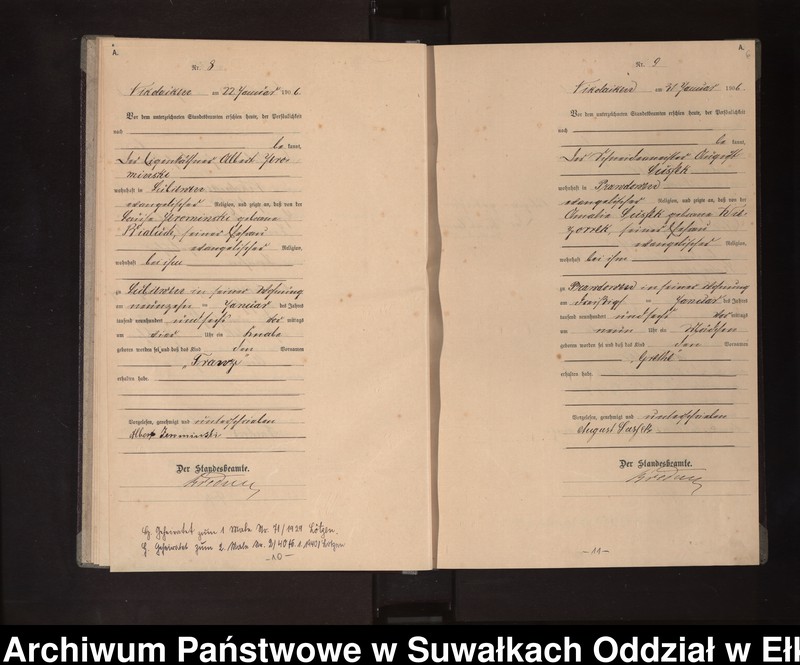 A.
Nr. 8
am 22 Januar 1906.
Vor dem unterzeichneten Standesbeamten erschien heute, der Persönlichkeit
nach
be kannt,
Der Eigenkäthner Albert Jero-
minski
wohnhaft in
evangelischer Religion, und zeigte an, daß von der
Louise Jerominski geborene
seiner Ehefrau
evangelischer Religion,
wohnhaft bei ihm
zu in seiner Wohnung
am neunzehn ten Januar des Jahres
tausend neunhundert und sechs Vor mittags
um vier Uhr ein Knabe
geboren worden sei und daß das Kind den Vornamen
„Franz“
erhalten habe.
Vorgelesen, genehmigt und unterschrieben
Albert Jerominski
Der Standesbeamte.
Geheiratet zum 1. Male Nr. 71/1929 Lötzen.
Geheiratet zum 2. Male Nr. Lötzen
-10-
A.
6
Nr. 9
am 31 Januar 1906.
Vor dem unterzeichneten Standesbeamten erschien heute, der Persönlichkeit
nach
be kannt,
Der Schneidermeister August
wohnhaft in
evangelischer Religion, und zeigte an, daß von der
Amalie geborene
seiner Ehefrau
evangelischer Religion,
wohnhaft bei ihm
zu in seiner Wohnung
am dreißigsten Januar des Jahres
tausend neunhundert und sechs Vor mittags
um neun Uhr ein Mädchen
geboren worden sei und daß das Kind den Vornamen
„Grethe“
erhalten habe.
Vorgelesen, genehmigt und unterschrieben
August
Der Standesbeamte.
-11-
Archiwum Państwowe w Suwałkach Oddział w Eł